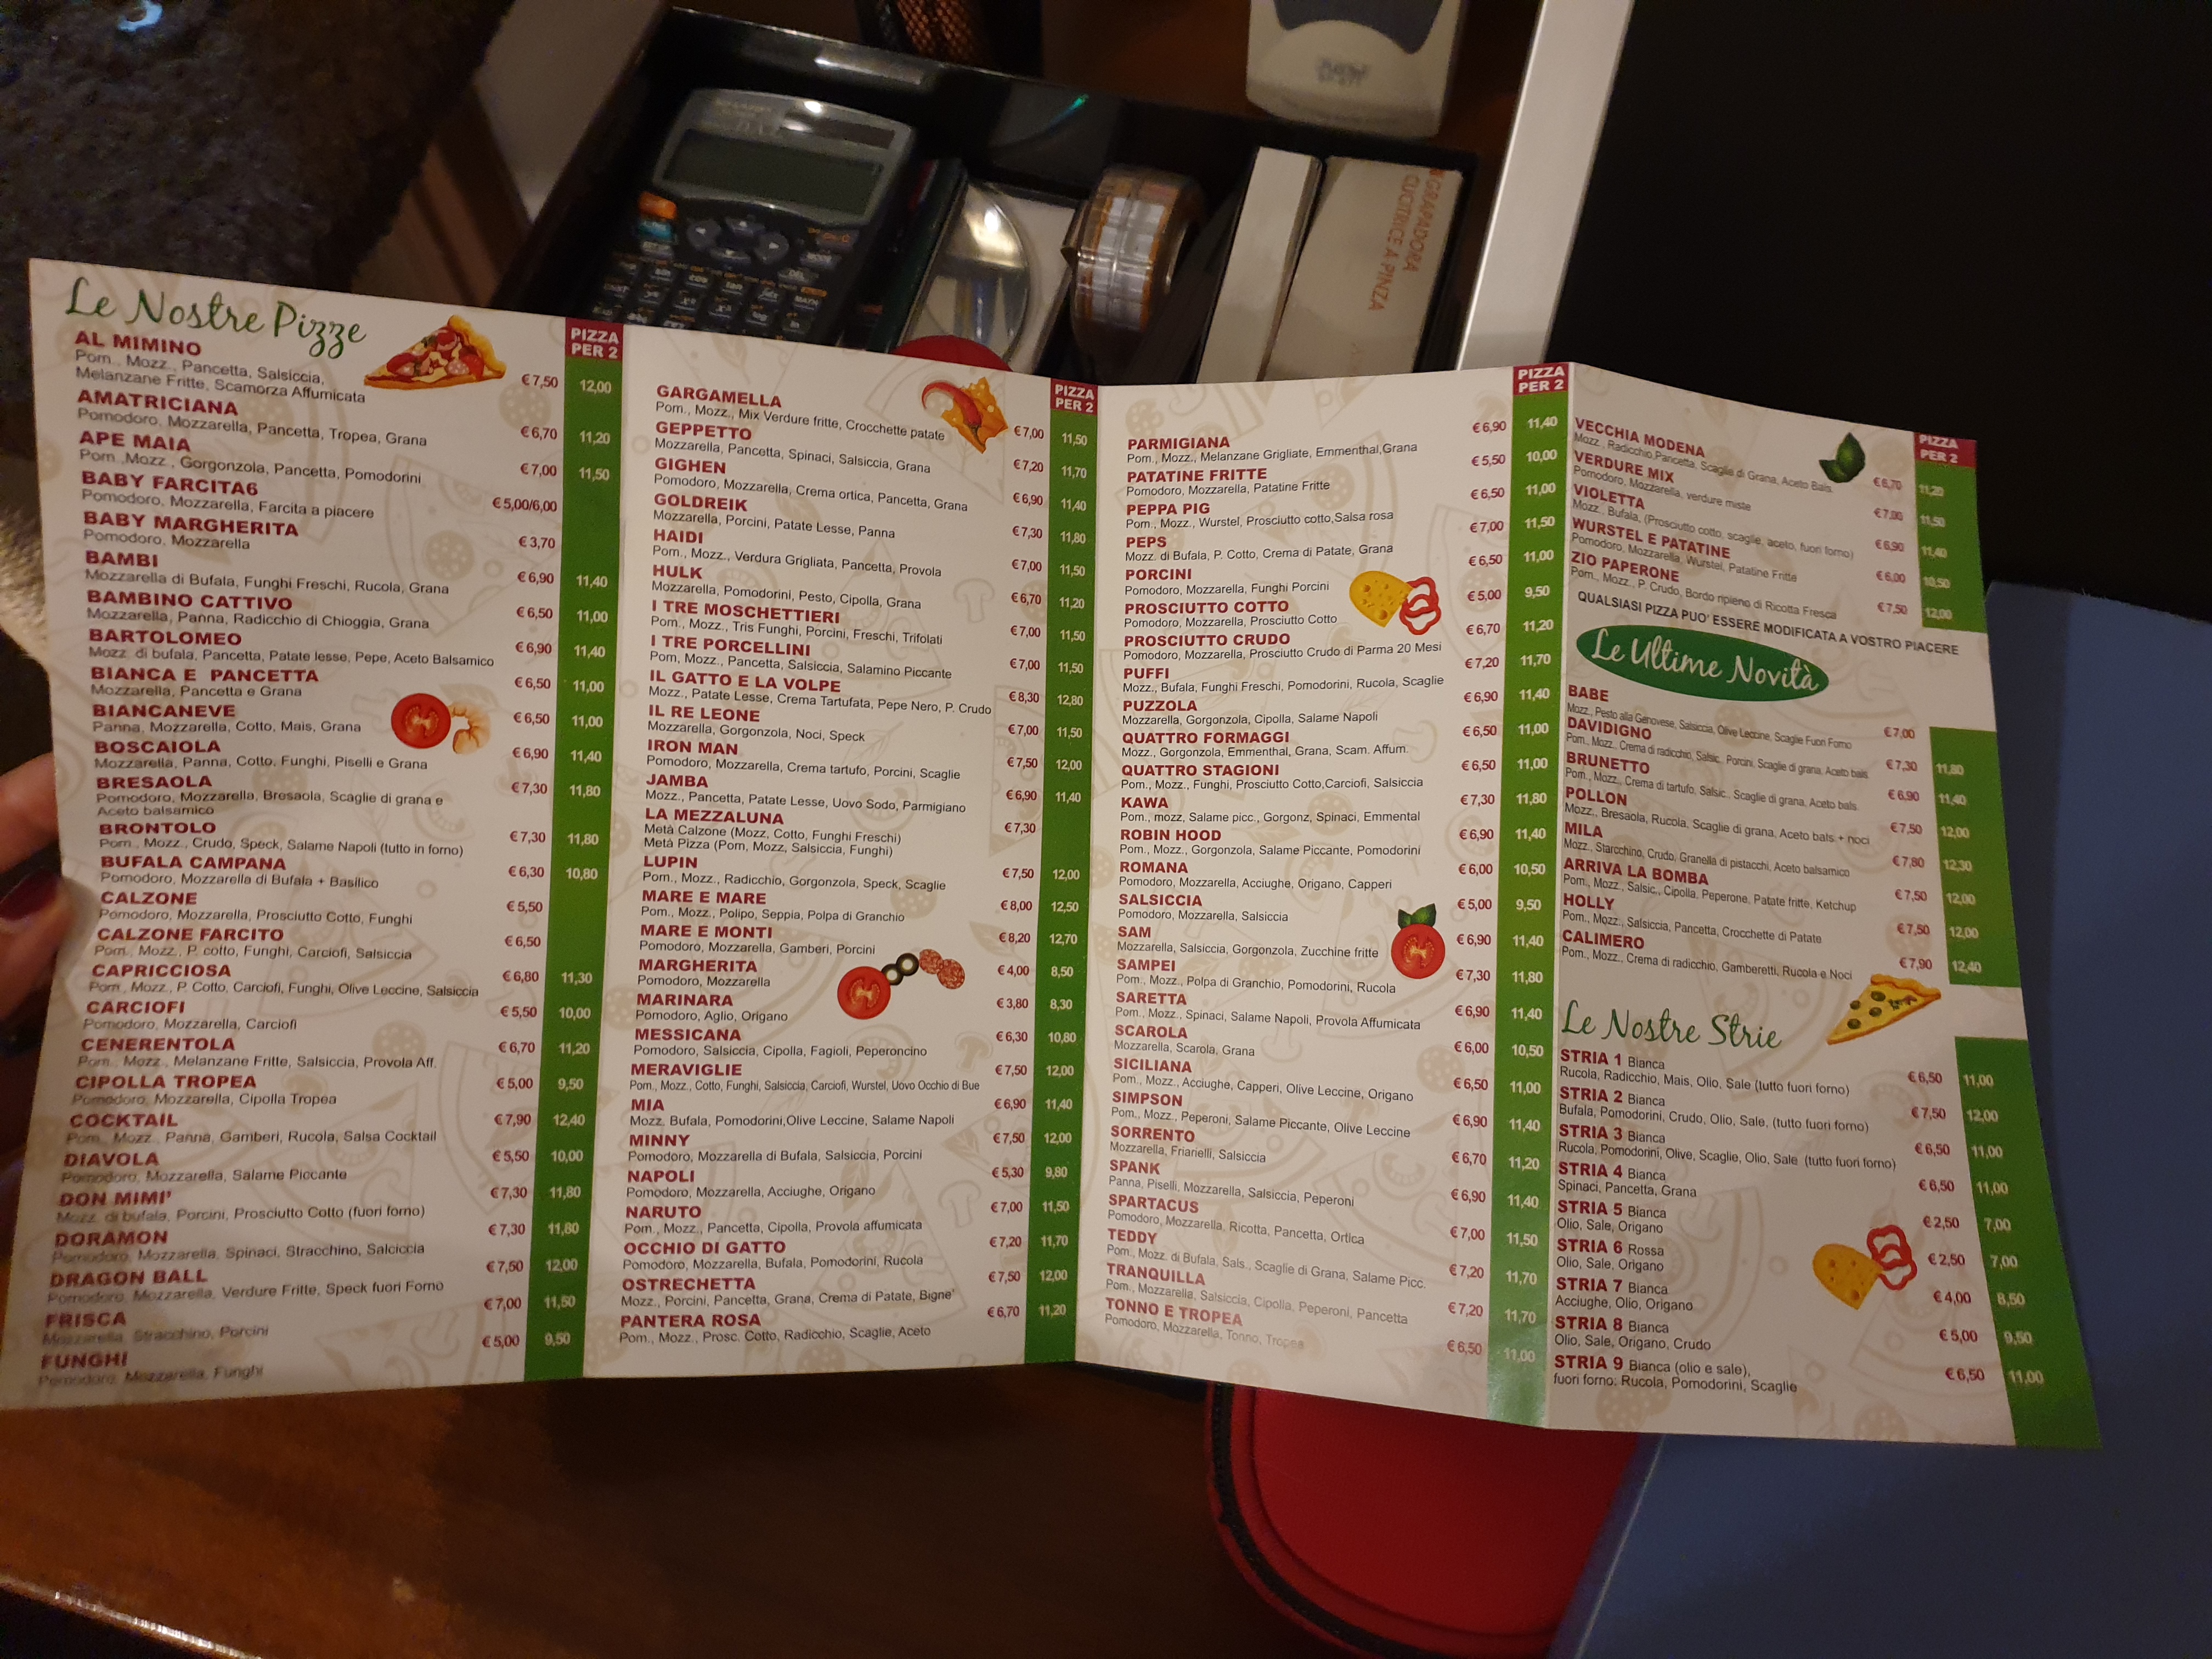 Le Nostre Pizze
PIZZA
PER 2
AL MIMINO
Pom., Mozz., Pancetta, Salsiccia,
Melanzane Fritte, Scamorza Affumicata
€ 7,50 12,00
AMATRICIANA
Pomodoro, Mozzarella, Pancetta, Tropea, Grana
€ 6,70 11,20
APE MAIA
Pom .Mozz., Gorgonzola, Pancetta, Pomodorini
€ 7,00 11,50
BABY FARCITA6
Pomodoro, Mozzarella, Farcita a piacere
€ 5,00/6,00
BABY MARGHERITA
Pomodoro, Mozzarella
€ 3,70
BAMBI
Mozzarella di Bufala, Funghi Freschi, Rucola, Grana
€ 6,90 11,40
BAMBINO CATTIVO
Mozzarella, Panna, Radicchio di Chioggia, Grana
€ 6,50 11,00
BARTOLOMEO
Mozz. di bufala, Pancetta, Patate lesse, Pepe, Aceto Balsamico
€ 6,90 11,40
BIANCA E PANCETTA
Mozzarella, Pancetta e Grana
€ 6,50 11,00
BIANCANEVE
Panna, Mozzarella, Cotto, Mais, Grana
€ 6,50 11,00
BOSCAIOLA
Mozzarella, Panna, Cotto, Funghi, Piselli e Grana
€ 6,90 11,40
BRESAOLA
Pomodoro, Mozzarella, Bresaola, Scaglie di grana e
Aceto balsamico
€ 7,30 11,80
BRONTOLO
Pom., Mozz., Crudo, Speck, Salame Napoli (tutto in forno)
€ 7,30 11,80
BUFALA CAMPANA
Pomodoro, Mozzarella di Bufala + Basilico
€ 6,30 10,80
CALZONE
Pomodoro, Mozzarella, Prosciutto Cotto, Funghi
€ 5,50
CALZONE FARCITO
Pom., Mozz., P. cotto, Funghi, Carciofi, Salsiccia
€ 6,50
CAPRICCIOSA
Pom., Mozz., P. Cotto, Carciofi, Funghi, Olive Leccine, Salsiccia
€ 6,80 11,30
CARCIOFI
Pomodoro, Mozzarella, Carciofi
€ 5,50 10,00
CENERENTOLA
Pom., Mozz., Melanzane Fritte, Salsiccia, Provola Aff.
€ 6,70 11,20
CIPOLLA TROPEA
Pomodoro, Mozzarella, Cipolla Tropea
€ 5,00 9,50
COCKTAIL
Pom., Mozz., Panna, Gamberi, Rucola, Salsa Cocktail
€ 7,90 12,40
DIAVOLA
Pomodoro, Mozzarella, Salame Piccante
€ 5,50 10,00
DON MIMI'
Mozz. di bufala, Porcini, Prosciutto Cotto (fuori forno)
€ 7,30 11,80
DORAMON
Pomodoro, Mozzarella, Spinaci, Stracchino, Salciccia
€ 7,30 11,80
DRAGON BALL
Pomodoro, Mozzarella, Verdure Fritte, Speck fuori Forno
€ 7,50 12,00
FRISCA
Mozzarella, Stracchino, Porcini
€ 7,00 11,50
FUNGHI
Pomodoro, Mozzarella, Funghi
€ 5,00 9,50
PIZZA
PER 2
GARGAMELLA
Pom., Mozz., Mix Verdure fritte, Crocchette patate
€ 7,00 11,50
GEPPETTO
Mozzarella, Pancetta, Spinaci, Salsiccia, Grana
€ 7,20 11,70
GIGHEN
Pomodoro, Mozzarella, Crema ortica, Pancetta, Grana
€ 6,90 11,40
GOLDREIK
Mozzarella, Porcini, Patate Lesse, Panna
€ 7,30 11,80
HAIDI
Pom., Mozz., Verdura Grigliata, Pancetta, Provola
€ 7,00 11,50
HULK
Mozzarella, Pomodorini, Pesto, Cipolla, Grana
€ 6,70 11,20
I TRE MOSCHETTIERI
Pom., Mozz., Tris Funghi, Porcini, Freschi, Trifolati
€ 7,00 11,50
I TRE PORCELLINI
Pom, Mozz., Pancetta, Salsiccia, Salamino Piccante
€ 7,00 11,50
IL GATTO E LA VOLPE
Mozz., Patate Lesse, Crema Tartufata, Pepe Nero, P. Crudo
€ 8,30 12,80
IL RE LEONE
Mozzarella, Gorgonzola, Noci, Speck
€ 7,00 11,50
IRON MAN
Pomodoro, Mozzarella, Crema tartufo, Porcini, Scaglie
€ 7,50 12,00
JAMBA
Mozz., Pancetta, Patate Lesse, Uovo Sodo, Parmigiano
€ 6,90 11,40
LA MEZZALUNA
Metà Calzone (Mozz, Cotto, Funghi Freschi)
Metà Pizza (Pom, Mozz, Salsiccia, Funghi)
€ 7,30
LUPIN
Pom., Mozz., Radicchio, Gorgonzola, Speck, Scaglie
€ 7,50 12,00
MARE E MARE
Pom., Mozz., Polipo, Seppia, Polpa di Granchio
€ 8,00 12,50
MARE E MONTI
Pomodoro, Mozzarella, Gamberi, Porcini
€ 8,20 12,70
MARGHERITA
Pomodoro, Mozzarella
€ 4,00 8,50
MARINARA
Pomodoro, Aglio, Origano
€ 3,80 8,30
MESSICANA
Pomodoro, Salsiccia, Cipolla, Fagioli, Peperoncino
€ 6,30 10,80
MERAVIGLIE
Pom., Mozz., Cotto, Funghi, Salsiccia, Carciofi, Wurstel, Uovo Occhio di Bue
€ 7,50 12,00
MIA
Mozz. Bufala, Pomodorini,Olive Leccine, Salame Napoli
€ 6,90 11,40
MINNY
Pomodoro, Mozzarella di Bufala, Salsiccia, Porcini
€ 7,50 12,00
NAPOLI
Pomodoro, Mozzarella, Acciughe, Origano
€ 5,30 9,80
NARUTO
Pom., Mozz., Pancetta, Cipolla, Provola affumicata
€ 7,00 11,50
OCCHIO DI GATTO
Pomodoro, Mozzarella, Bufala, Pomodorini, Rucola
€ 7,20 11,70
OSTRECHETTA
Mozz., Porcini, Pancetta, Grana, Crema di Patate, Bigne'
€ 7,50 12,00
PANTERA ROSA
Pom., Mozz., Prosc. Cotto, Radicchio, Scaglie, Aceto
€ 6,70 11,20
PIZZA
PER 2
PARMIGIANA
Pom., Mozz., Melanzane Grigliate, Emmenthal,Grana
€ 6,90 11,40
PATATINE FRITTE
Pomodoro, Mozzarella, Patatine Fritte
€ 5,50 10,00
PEPPA PIG
Pom., Mozz., Wurstel, Prosciutto cotto,Salsa rosa
€ 6,50 11,00
PEPS
Mozz. di Bufala, P. Cotto, Crema di Patate, Grana
€ 7,00 11,50
PORCINI
Pomodoro, Mozzarella, Funghi Porcini
€ 6,50 11,00
PROSCIUTTO COTTO
Pomodoro, Mozzarella, Prosciutto Cotto
€ 5,00 9,50
PROSCIUTTO CRUDO
Pomodoro, Mozzarella, Prosciutto Crudo di Parma 20 Mesi
€ 6,70 11,20
PUFFI
Mozz., Bufala, Funghi Freschi, Pomodorini, Rucola, Scaglie
€ 7,20 11,70
PUZZOLA
Mozzarella, Gorgonzola, Cipolla, Salame Napoli
€ 6,90 11,40
QUATTRO FORMAGGI
Mozz., Gorgonzola, Emmenthal, Grana, Scam. Affum.
€ 6,50 11,00
QUATTRO STAGIONI
Pom., Mozz., Funghi, Prosciutto Cotto,Carciofi, Salsiccia
€ 6,50 11,00
KAWA
Pom., mozz, Salame picc., Gorgonz, Spinaci, Emmental
€ 7,30 11,80
ROBIN HOOD
Pom., Mozz., Gorgonzola, Salame Piccante, Pomodorini
€ 6,90 11,40
ROMANA
Pomodoro, Mozzarella, Acciughe, Origano, Capperi
€ 6,00 10,50
SALSICCIA
Pomodoro, Mozzarella, Salsiccia
€ 5,00 9,50
SAM
Mozzarella, Salsiccia, Gorgonzola, Zucchine fritte
€ 6,90 11,40
SAMPEI
Pom., Mozz., Polpa di Granchio, Pomodorini, Rucola
€ 7,30 11,80
SARETTA
Pom., Mozz., Spinaci, Salame Napoli, Provola Affumicata
€ 6,90 11,40
SCAROLA
Mozzarella, Scarola, Grana
€ 6,00 10,50
SICILIANA
Pom., Mozz., Acciughe, Capperi, Olive Leccine, Origano
€ 6,50 11,00
SIMPSON
Pom., Mozz., Peperoni, Salame Piccante, Olive Leccine
€ 6,90 11,40
SORRENTO
Mozzarella, Friarielli, Salsiccia
€ 6,70 11,20
SPANK
Panna, Piselli, Mozzarella, Salsiccia, Peperoni
€ 6,90 11,40
SPARTACUS
Pomodoro, Mozzarella, Ricotta, Pancetta, Ortica
€ 7,00 11,50
TEDDY
Pom., Mozz. di Bufala, Sals., Scaglie di Grana, Salame Picc.
€ 7,20 11,70
TRANQUILLA
Pom., Mozzarella, Salsiccia, Cipolla, Peperoni, Pancetta
€ 7,20 11,70
TONNO E TROPEA
Pomodoro, Mozzarella, Tonno, Tropea
€ 6,50 11,00
PIZZA
PER 2
VECCHIA MODENA
Mozz., Radicchio,Pancetta, Scaglie di Grana, Aceto Bals.
€ 6,70 11,20
VERDURE MIX
Pomodoro, Mozzarella, verdure miste
€ 7,00 11,50
VIOLETTA
Mozz., Bufala, (Prosciutto cotto, scaglie, aceto, fuori forno)
€ 6,90 11,40
WURSTEL E PATATINE
Pomodoro, Mozzarella, Wurstel, Patatine Fritte
€ 6,00 10,50
ZIO PAPERONE
Pom., Mozz., P. Crudo, Bordo ripieno di Ricotta Fresca
€ 7,50 12,00
QUALSIASI PIZZA PUO' ESSERE MODIFICATA A VOSTRO PIACERE
Le Ultime Novità
BABE
Mozz., Pesto alla Genovese, Salsiccia, Olive Leccine, Scaglie Fuori Forno
€ 7,00
DAVIDIGNO
Pom., Mozz., Crema di radicchio, Salsic., Porcini, Scaglie di grana, Aceto bals.
€ 7,30 11,80
BRUNETTO
Pom., Mozz., Crema di tartufo, Salsic., Scaglie di grana, Aceto bals.
€ 6,90 11,40
POLLON
Mozz., Bresaola, Rucola, Scaglie di grana, Aceto bals + noci
€ 7,50 12,00
MILA
Mozz., Starcchino, Crudo, Granella di pistacchi, Aceto balsamico
€ 7,80 12,30
ARRIVA LA BOMBA
Pom., Mozz., Salsic., Cipolla, Peperone, Patate fritte, Ketchup
€ 7,50 12,00
HOLLY
Pom., Mozz., Salsiccia, Pancetta, Crocchette di Patate
€ 7,50 12,00
CALIMERO
Pom., Mozz., Crema di radicchio, Gamberetti, Rucola e Noci
€ 7,90 12,40
Le Nostre Strie
STRIA 1 Bianca
Rucola, Radicchio, Mais, Olio, Sale (tutto fuori forno)
€ 6,50 11,00
STRIA 2 Bianca
Bufala, Pomodorini, Crudo, Olio, Sale, (tutto fuori forno)
€ 7,50 12,00
STRIA 3 Bianca
Rucola, Pomodorini, Olive, Scaglie, Olio, Sale (tutto fuori forno)
€ 6,50 11,00
STRIA 4 Bianca
Spinaci, Pancetta, Grana
€ 6,50 11,00
STRIA 5 Bianca
Olio, Sale, Origano
€ 2,50 7,00
STRIA 6 Rossa
Olio, Sale, Origano
€ 2,50 7,00
STRIA 7 Bianca
Acciughe, Olio, Origano
€ 4,00 8,50
STRIA 8 Bianca
Olio, Sale, Origano, Crudo
€ 5,00 9,50
STRIA 9 Bianca (olio e sale),
fuori forno: Rucola, Pomodorini, Scaglie
€ 6,50 11,00
GRAPADORA
CUCITRICE A PINZA